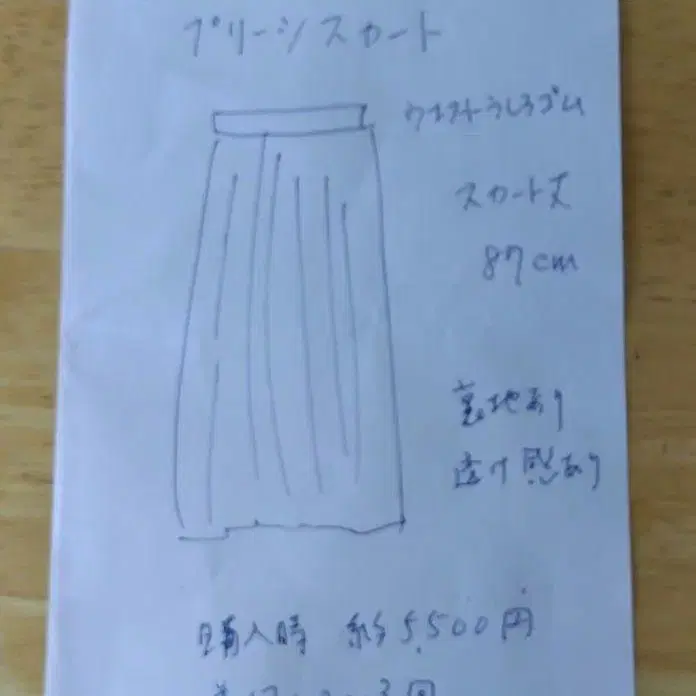 プリーツスカート
ウエストうしろゴム
スカート丈
87cm
裏地あり
透け感あり
購入時 約5,500円
3回